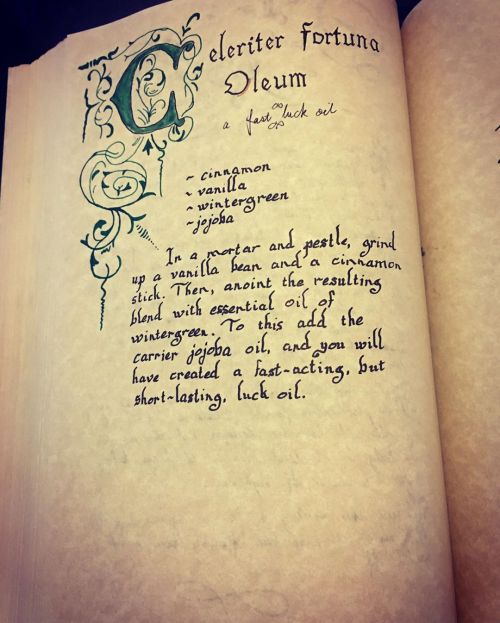 Celeriter Fortuna
Oleum
a fast luck oil
~ cinnamon
~ vanilla
~ wintergreen
~ jojoba
In a mortar and pestle, grind
up a vanilla bean and a cinnamon
stick. Then, anoint the resulting
blend with essential oil of
wintergreen. To this add the
carrier jojoba oil, and you will
have created a fast-acting, but
short-lasting, luck oil.